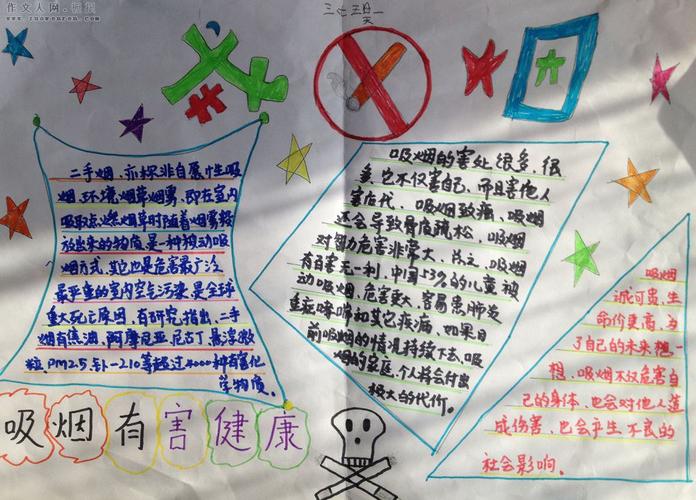 作文人网·板报
www.zuowenren.com
三七五
天
二手烟，亦称非自愿性吸
烟、环境烟草烟雾，即在室内
吸取点燃烟草时随着烟雾释
放出来的物质，是一种被动吸
烟方式，其它也是危害最广泛
最严重的室内空气污染，是全球
重大死亡原因，有研究指出，二手
烟有焦油，阿摩尼亚，尼古丁，悬浮微
粒，PM2.5，钋-210等超过4000种有害化
学物质。
吸烟的害处很多，很
它不仅害自己，而且害他人
害后代，吸烟致癌，吸烟
还会导致骨质疏松，吸烟
对智力危害非常大，总之，吸烟
有百害无一利，中国53%的儿童被
动吸烟，危害更大，容易患肺炎
重症哮喘和其它疾病，如果目
前吸烟的情况持续下去，吸
烟的家庭、个人将会付出
极大的代价。
吸烟
诚可贵，生
命价更高，为
了自己的未来想一
想，吸烟不仅危害自
己的身体，也会对他人造
成伤害，也会产生不良的
社会影响。
吸烟有害健康